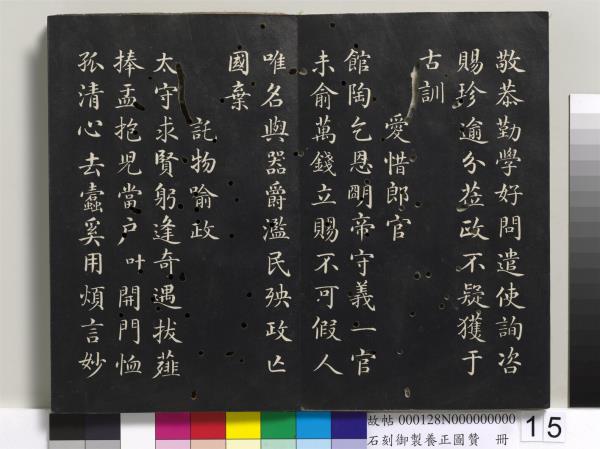 敬恭勤學好問遣使詢咨
賜珍逾分莅政不疑獲于
古訓
愛惜郎官
館陶乞恩明帝守義一官
未俞萬錢立賜不可假人
唯名與器爵濫民殃政亡
國棄
託物喻政
太守求賢躬逢奇遇拔薤
捧盂抱兒當戶叶開門恤
孤清心去蠹奚用煩言妙
故帖 000128N000000000
石刻御製養正圖贊 冊
15